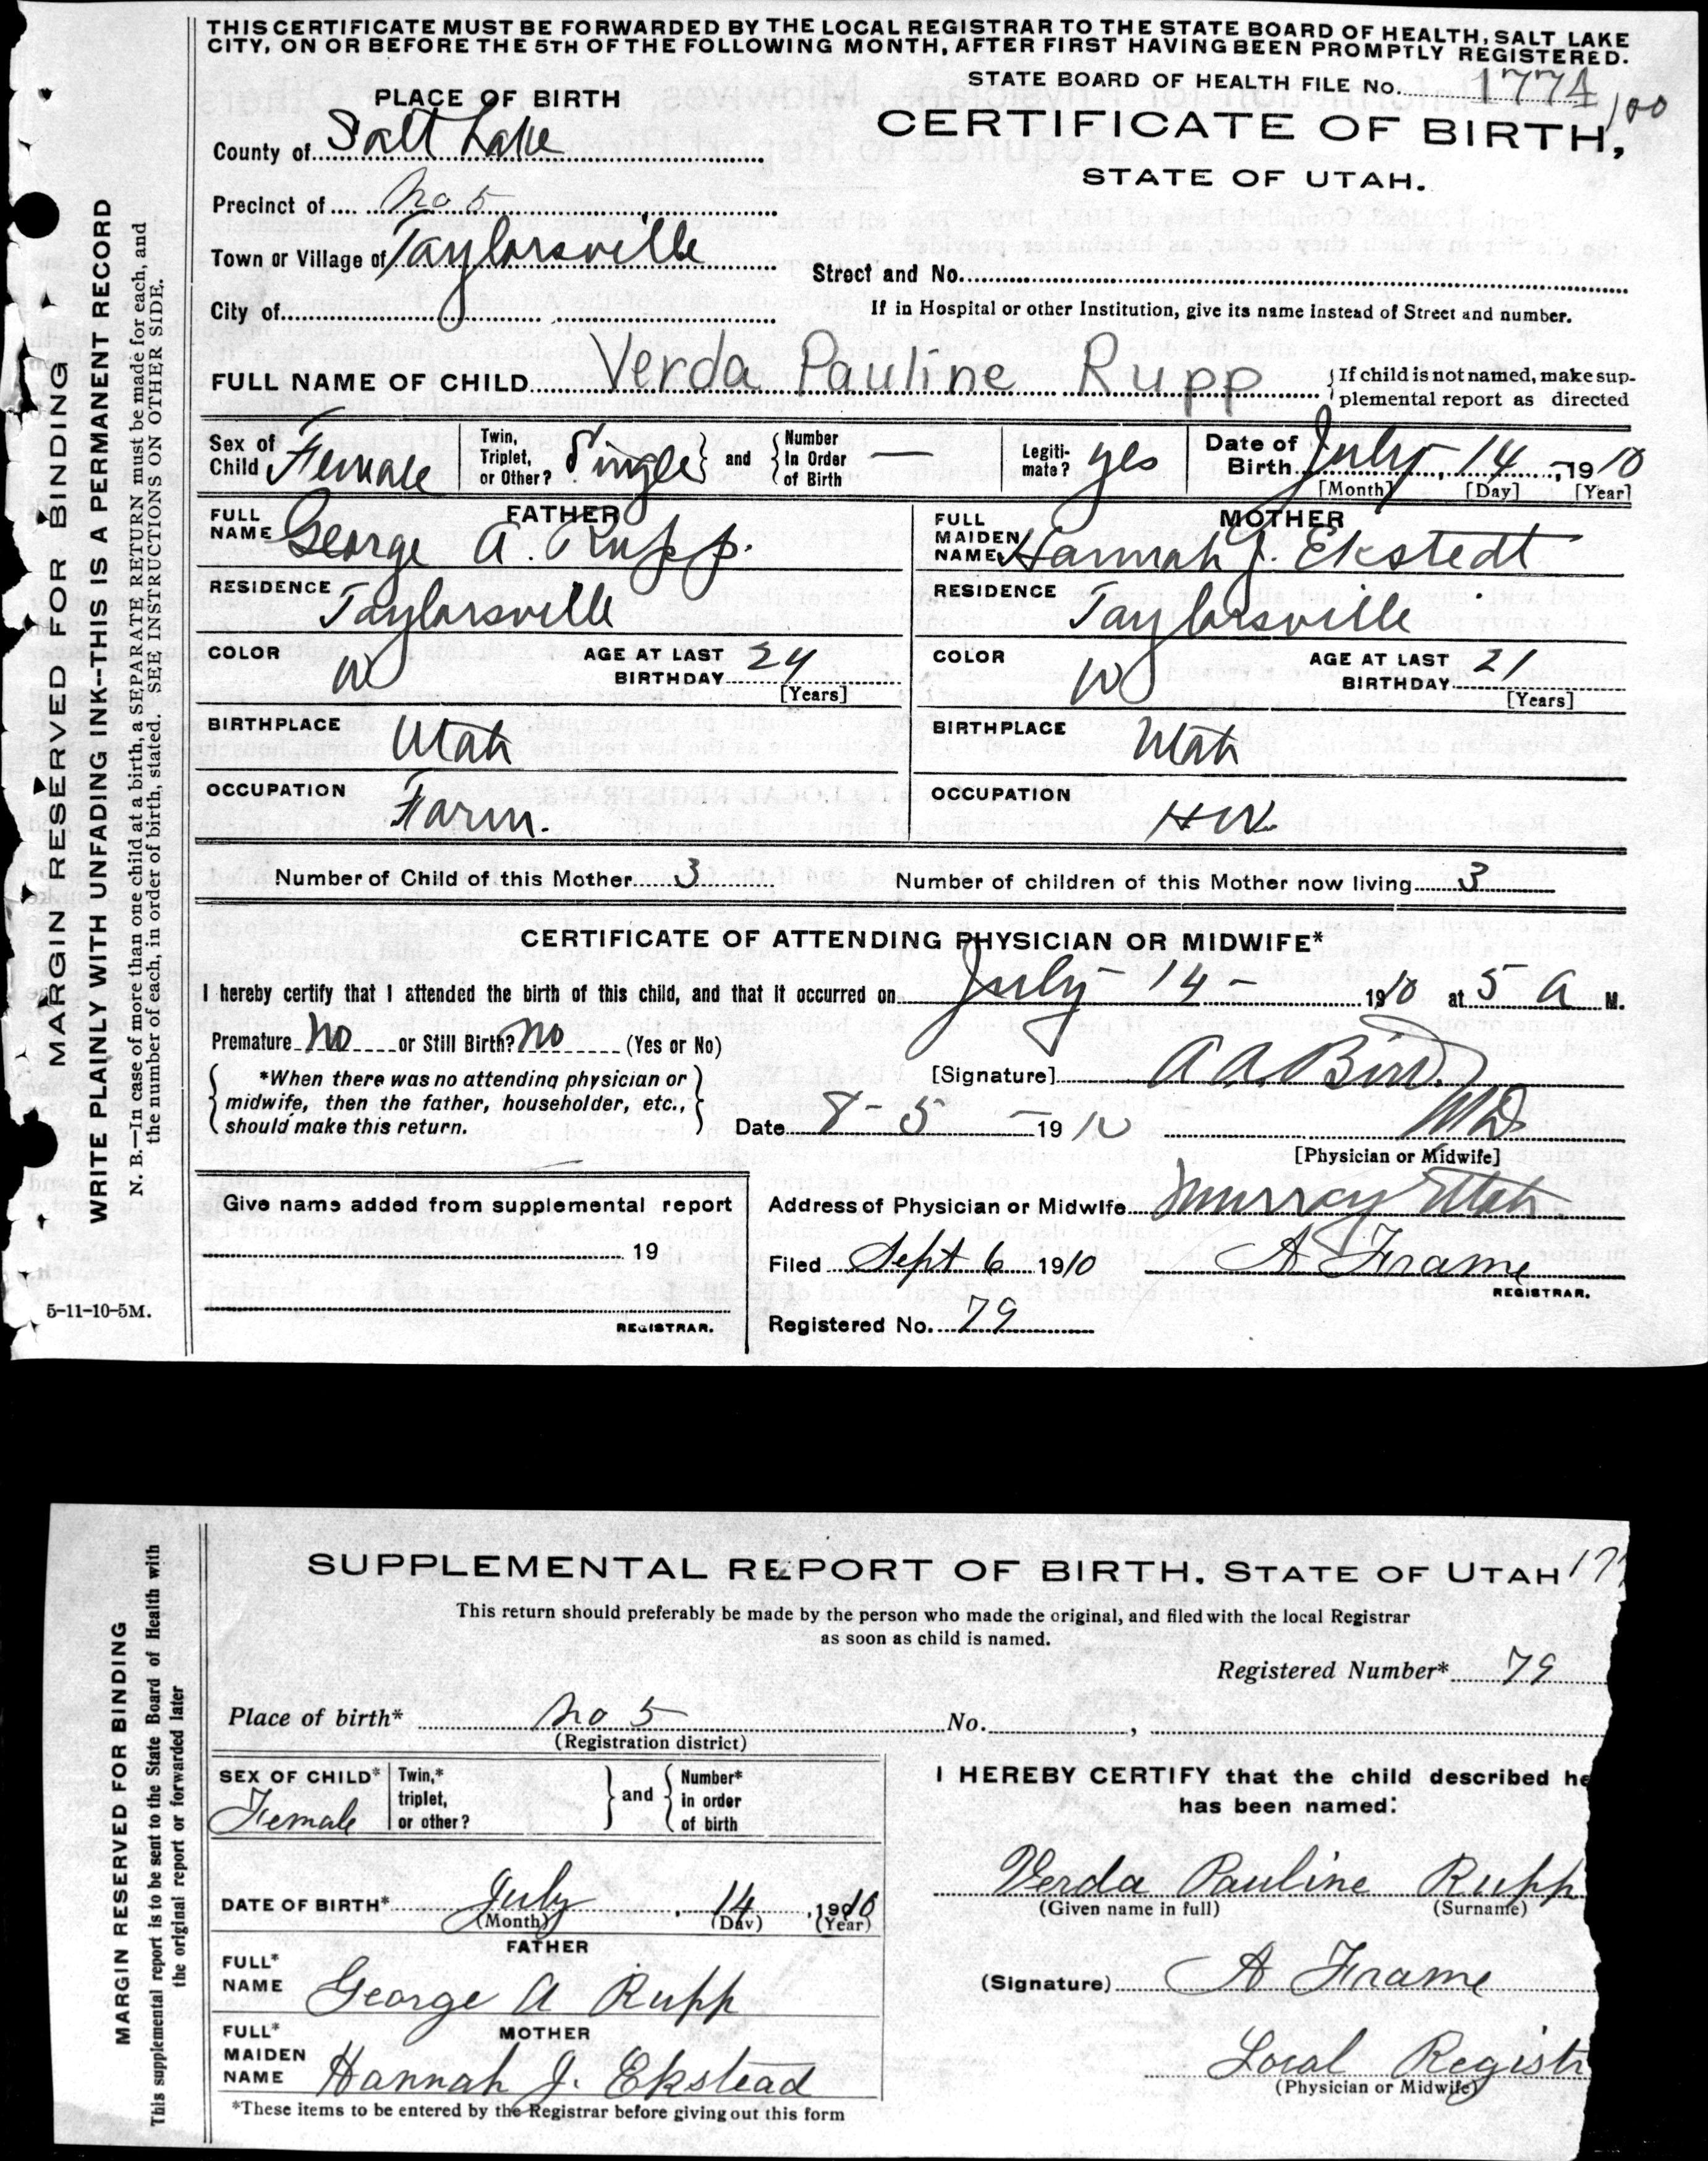 THIS CERTIFICATE MUST BE FORWARDED BY THE LOCAL REGISTRAR TO THE STATE BOARD OF HEALTH, SALT LAKE
CITY, ON OR BEFORE THE 5TH OF THE FOLLOWING MONTH, AFTER FIRST HAVING BEEN PROMPTLY REGISTERED.
STATE BOARD OF HEALTH FILE No. 1774
100
PLACE OF BIRTH
CERTIFICATE OF BIRTH,
STATE OF UTAH.
County of Salt Lake
Precinct of No 5
Town or Village of Taylorsville
Street and No.
City of
If in Hospital or other Institution, give its name instead of Street and number.
FULL NAME OF CHILD Verda Pauline Rupp
If child is not named, make sup-
plemental report as directed
Sex of Child Female
Twin, Triplet, or Other? Single and Number In Order of Birth —
Legiti-mate? yes
Date of Birth July 14 - 1910
[Month] [Day] [Year]
FATHER
FULL NAME George A. Rupp.
MOTHER
FULL MAIDEN NAME Hannah J. Ekstedt
RESIDENCE Taylorsville
RESIDENCE Taylorsville
COLOR W AGE AT LAST BIRTHDAY 24 [Years]
COLOR W AGE AT LAST BIRTHDAY 21 [Years]
BIRTHPLACE Utah
BIRTHPLACE Utah
OCCUPATION Farm.
OCCUPATION HW.
Number of Child of this Mother 3 Number of children of this Mother now living 3
CERTIFICATE OF ATTENDING PHYSICIAN OR MIDWIFE*
I hereby certify that I attended the birth of this child, and that it occurred on July - 14 - 1910 at 5 a M.
Premature No or Still Birth? No (Yes or No)
*When there was no attending physician or
midwife, then the father, householder, etc.,
should make this return.
[Signature] A A. Bird.
Date 8 - 5 - 19 10 MD.
[Physician or Midwife]
Give name added from supplemental report
19
REGISTRAR.
Address of Physician or Midwife Murray Utah
Filed Sept 6 1910 A Frame
REGISTRAR.
Registered No. 79
MARGIN RESERVED FOR BINDING
WRITE PLAINLY WITH UNFADING INK--THIS IS A PERMANENT RECORD
N. B.—In case of more than one child at a birth, a SEPARATE RETURN must be made for each, and
the number of each, in order of birth, stated. SEE INSTRUCTIONS ON OTHER SIDE.
5-11-10-5M.
SUPPLEMENTAL REPORT OF BIRTH, STATE OF UTAH 17
This return should preferably be made by the person who made the original, and filed with the local Registrar
as soon as child is named.
Registered Number* 79
Place of birth* No 5 No. ,
(Registration district)
SEX OF CHILD* Female
Twin,* triplet, or other? and Number* in order of birth
DATE OF BIRTH* July 14, 1910
(Month) (Day) (Year)
FATHER
FULL* NAME George A Rupp
MOTHER
FULL* MAIDEN NAME Hannah J. Ekstead
*These items to be entered by the Registrar before giving out this form
I HEREBY CERTIFY that the child described he
has been named:
Verda Pauline Rupp
(Given name in full) (Surname)
(Signature) A Frame
Local Registr
(Physician or Midwife)
MARGIN RESERVED FOR BINDING
This supplemental report is to be sent to the State Board of Health with
the original report or forwarded later